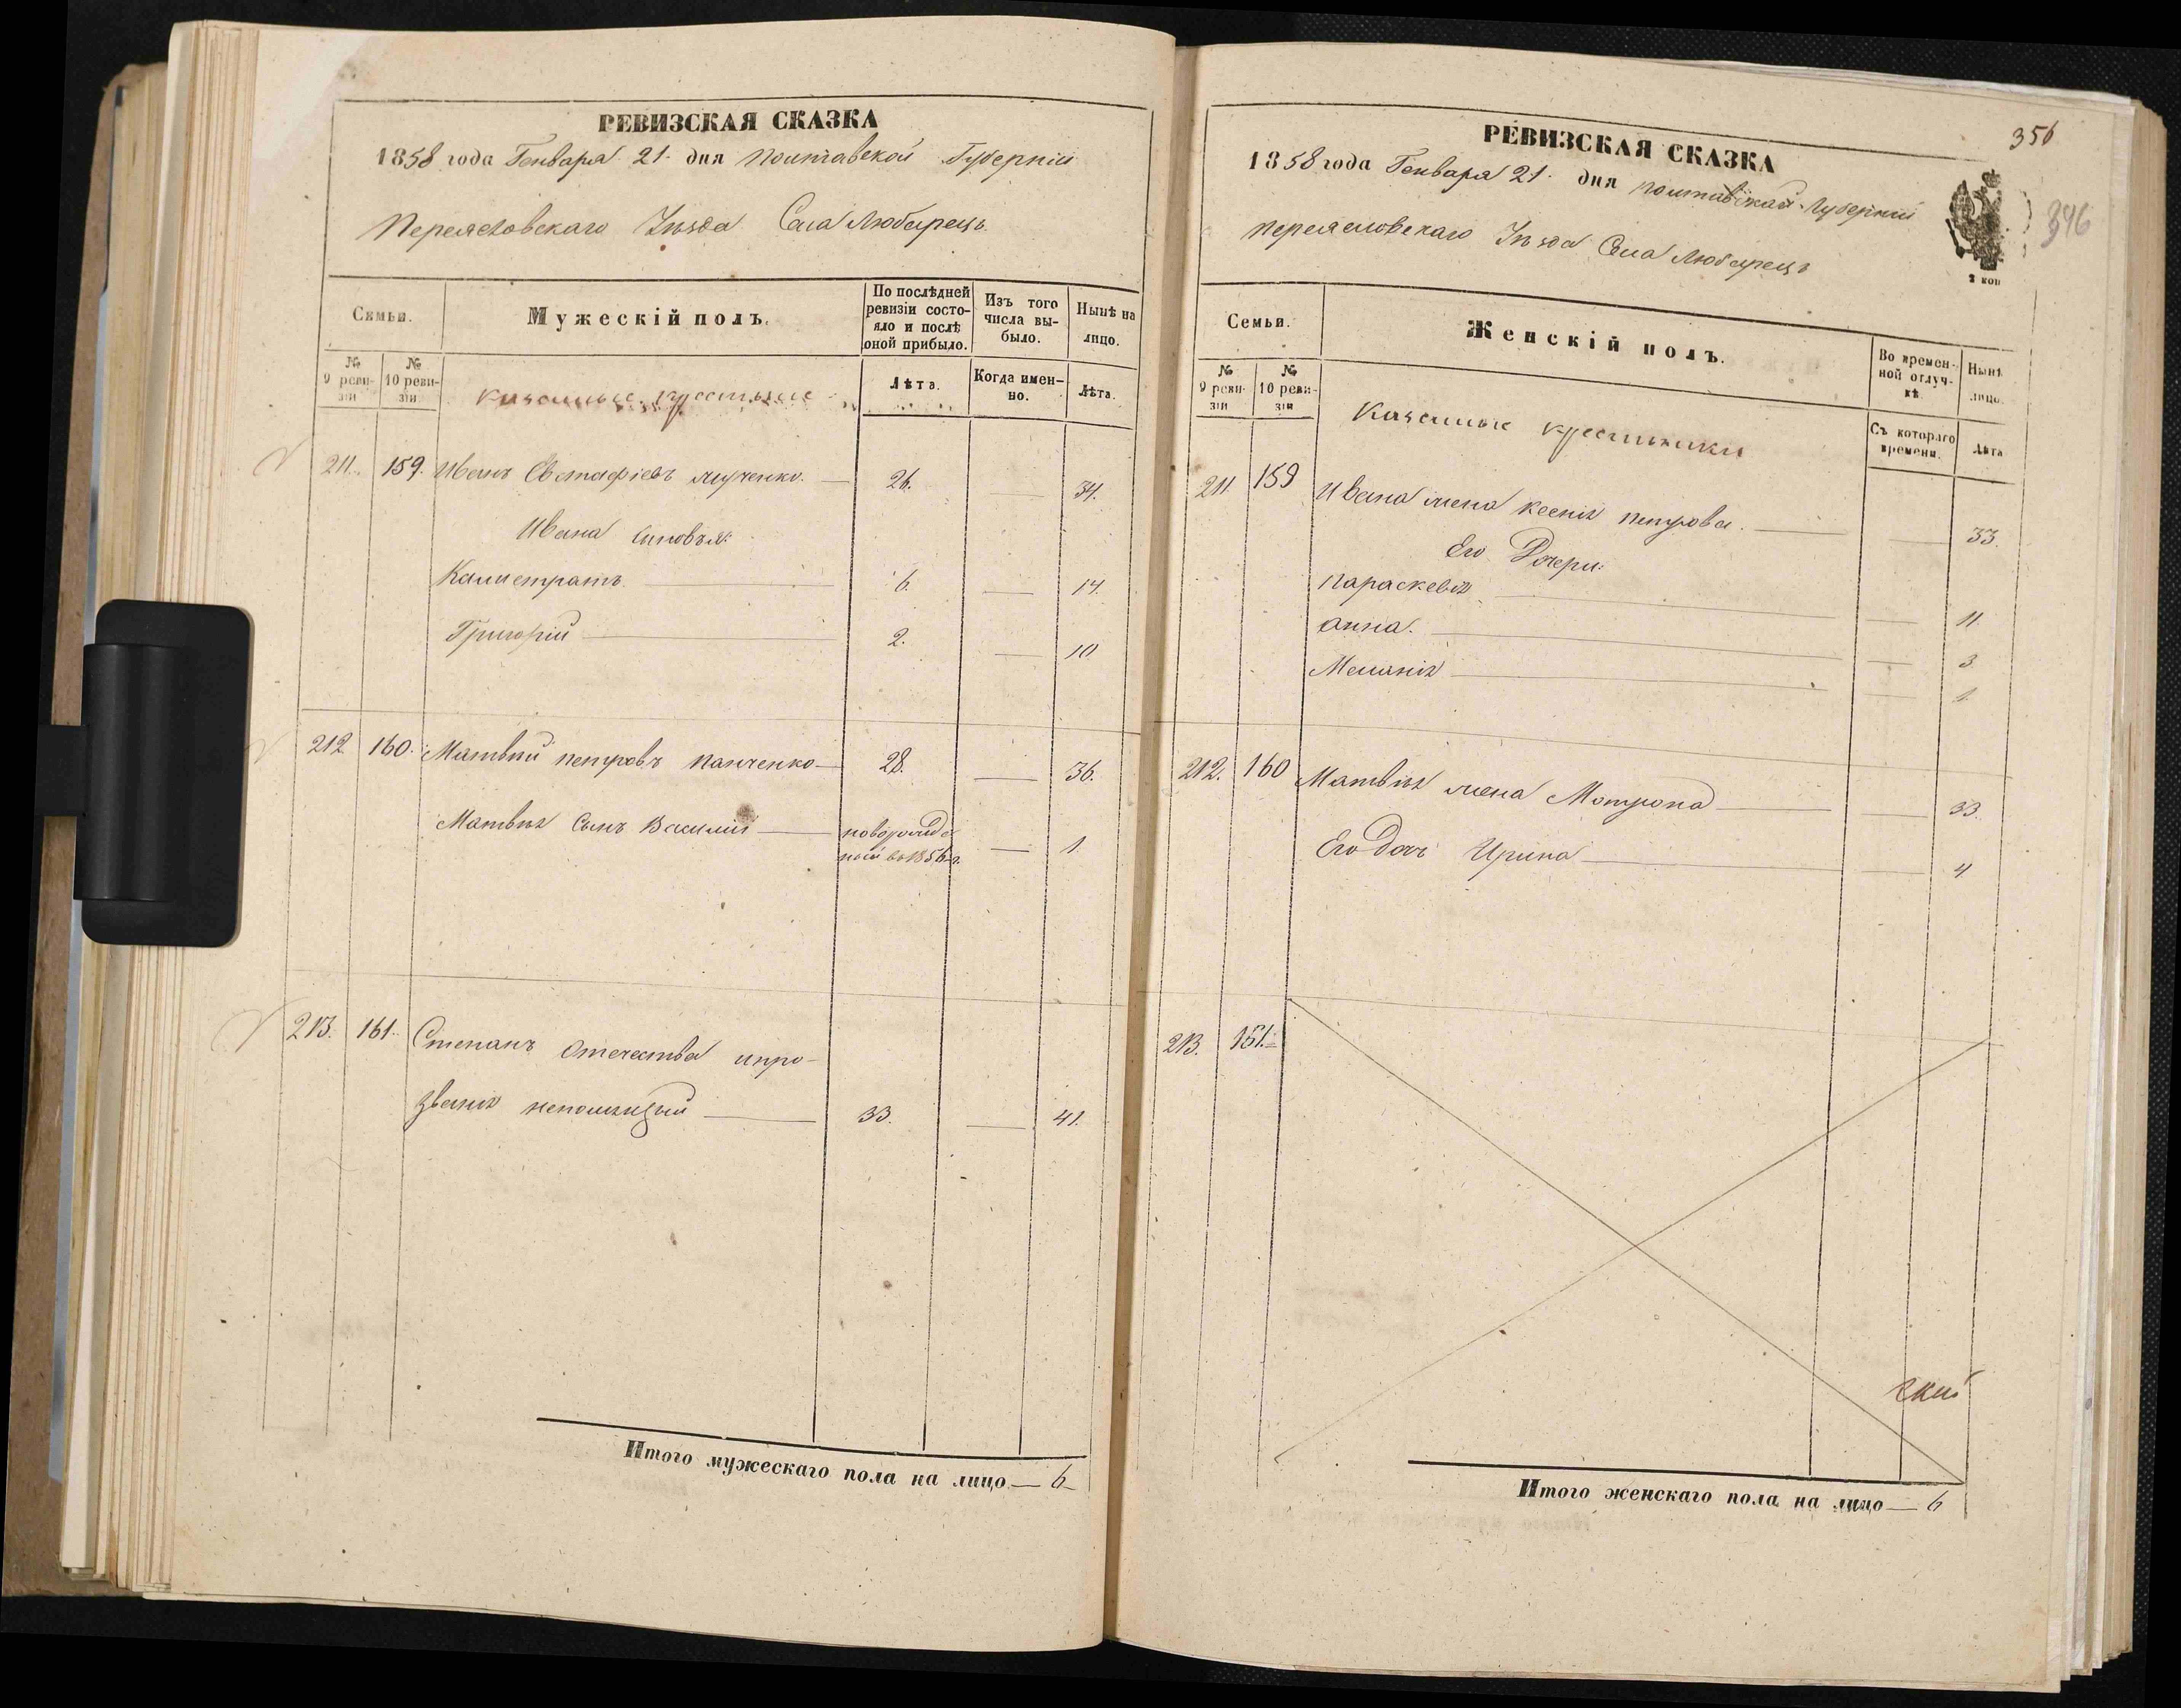 РЕВИЗСКАЯ СКАЗКА
1858 года Генваря 21 дня Полтавской Губерніи
Переясловскаго Уѣзда Села Любарецъ
Семьи.
Мужескій полъ.
По послѣдней ревизіи состояло и послѣ оной прибыло.
Изъ того числа выбыло.
Нынѣ на лицо.
№ 9 ревизіи
№ 10 ревизіи
казенные крестьяне
Лѣта.
Когда именно.
Лѣта.
211. 159. Иванъ Евстафіевъ 26. 34.
Ивана сыновья:
Калистратъ 6. 14.
Григорій 2. 10
212 160. Матвѣй Петровъ Панченко 28. 36.
Матвѣя сынъ Василій новорожде
ной во 1856 г. 1
213. 161. Степанъ Отечества и про-
званія непомнящій 33. 41.
Итого мужескаго пола на лицо — 6
РЕВИЗСКАЯ СКАЗКА
356
346
1858 года Генваря 21 дня Полтавской Губерніи
Переясловскаго Уѣзда Села Любарецъ
2 коп
Семьи.
Женскій полъ.
Во временной отлучкѣ.
Нынѣ лицо.
№ 9 ревизіи
№ 10 ревизіи
Казенные крестьянки
Съ котораго времени.
Лѣта
211 159 Ивана жена Ксенія Петрова. 33.
Его Дочери:
Параскевія 11
Анна. 3
Меланія 1
212. 160 Матвѣя жена Мотрона 33.
Его Дочь Ирина 4
213. 161.
Итого женскаго пола на лицо — 6